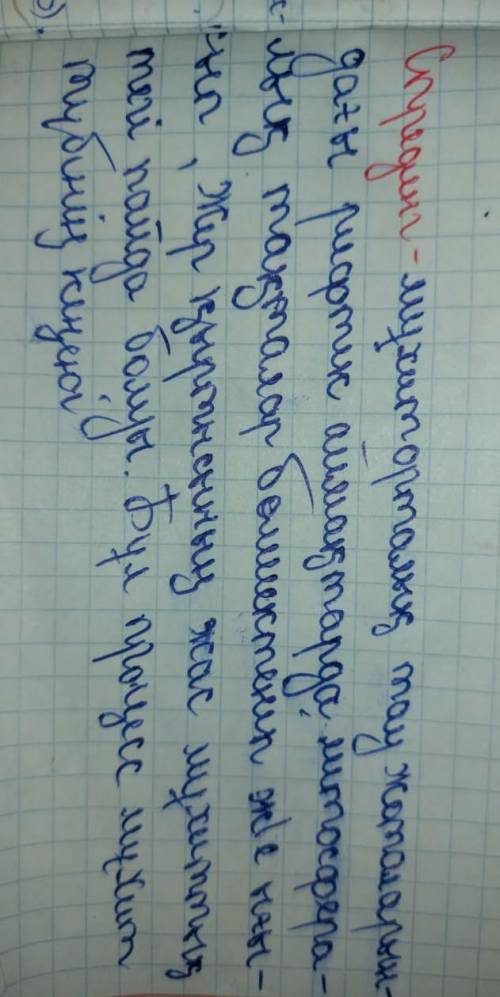 Спрединг - мұхиторталық тау жоталарын-
дағы рифтик аймақтарда, литосфера-
лық тақталар бөлшектенип ж/е
, Жер қыртысының жас мұхиттық
пайда болуы. Бұл процесс мұхит
түбінің кеңеюі